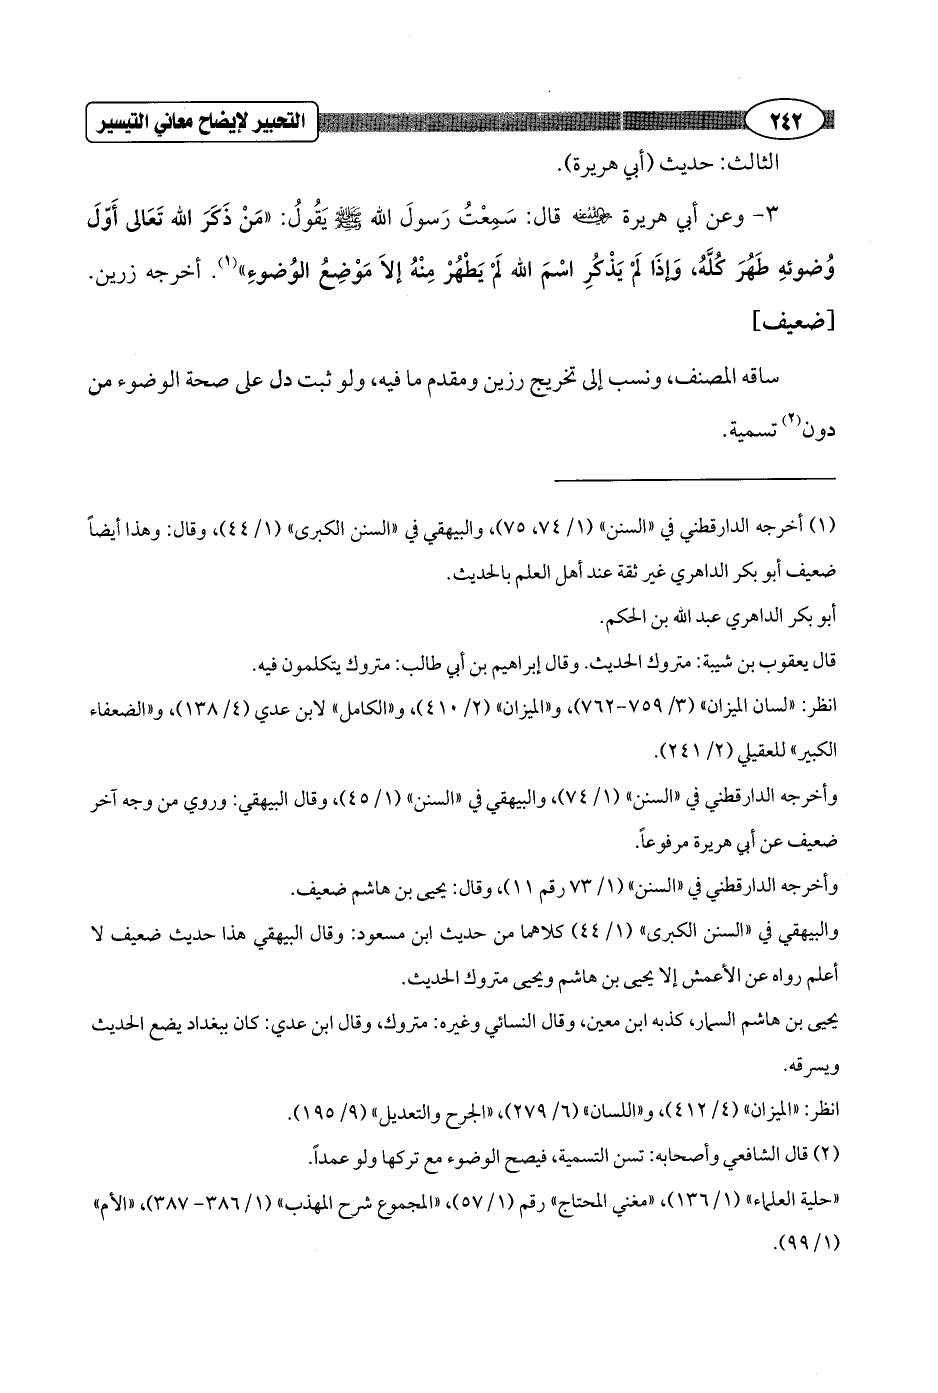 ٢٤٢ التحبير لإيضاح معاني التيسير
الثالث: حديث (أبي هريرة).
٣- وعن أبي هريرة رضي الله عنه قال: سَمِعْتُ رَسولَ الله ﷺ يَقُولُ: «مَنْ ذَكَرَ الله تَعَالى أَوَّلَ
وُضوئهِ طَهُرَ كُلَّهُ، وَإذَا لَمْ يَذْكُرِ اسْمَ الله لَمْ يَطْهُرْ مِنْهُ إلاَ مَوْضِعُ الوُضوءِ»(١). أخرجه زرين.
[ضعيف]
ساقه المصنف، ونسب إلى تخريج رزين ومقدم ما فيه، ولو ثبت دل على صحة الوضوء من
دون(٢) تسمية.
(١) أخرجه الدارقطني في «السنن» (١/ ٧٤، ٧٥)، والبيهقي في «السنن الكبرى» (١/ ٤٤)، وقال: وهذا أيضاً
ضعيف أبو بكر الداهري غير ثقة عند أهل العلم بالحديث.
أبو بكر الداهري عبد الله بن الحكم.
قال يعقوب بن شيبة: متروك الحديث. وقال إبراهيم بن أبي طالب: متروك يتكلمون فيه.
انظر: «لسان الميزان» (٣/ ٧٥٩-٧٦٢)، و«الميزان» (٢/ ٤١٠)، و«الكامل» لابن عدي (٤/ ١٣٨)، و«الضعفاء
الكبير» للعقيلي (٢/ ٢٤١).
وأخرجه الدارقطني في «السنن» (١/ ٧٤)، والبيهقي في «السنن» (١/ ٤٥)، وقال البيهقي: وروي من وجه آخر
ضعيف عن أبي هريرة مرفوعاً.
وأخرجه الدارقطني في «السنن» (١/ ٧٣ رقم ١١)، وقال: يحيى بن هاشم ضعيف.
والبيهقي في «السنن الكبرى» (١/ ٤٤) كلاهما من حديث ابن مسعود: وقال البيهقي هذا حديث ضعيف لا
أعلم رواه عن الأعمش إلا يحيى بن هاشم ويحيى متروك الحديث.
يحيى بن هاشم السمار، كذبه ابن معين، وقال النسائي وغيره: متروك، وقال ابن عدي: كان ببغداد يضع الحديث
ويسرقه.
انظر: «الميزان» (٤/ ٤١٢)، و«اللسان» (٦/ ٢٧٩)، «الجرح والتعديل» (٩/ ١٩٥).
(٢) قال الشافعي وأصحابه: تسن التسمية، فيصح الوضوء مع تركها ولو عمداً.
«حلية العلماء» (١/ ١٣٦)، «مغني المحتاج» رقم (١/ ٥٧)، «المجموع شرح المهذب» (١/ ٣٨٦- ٣٨٧)، «الأم»
(١/ ٩٩).